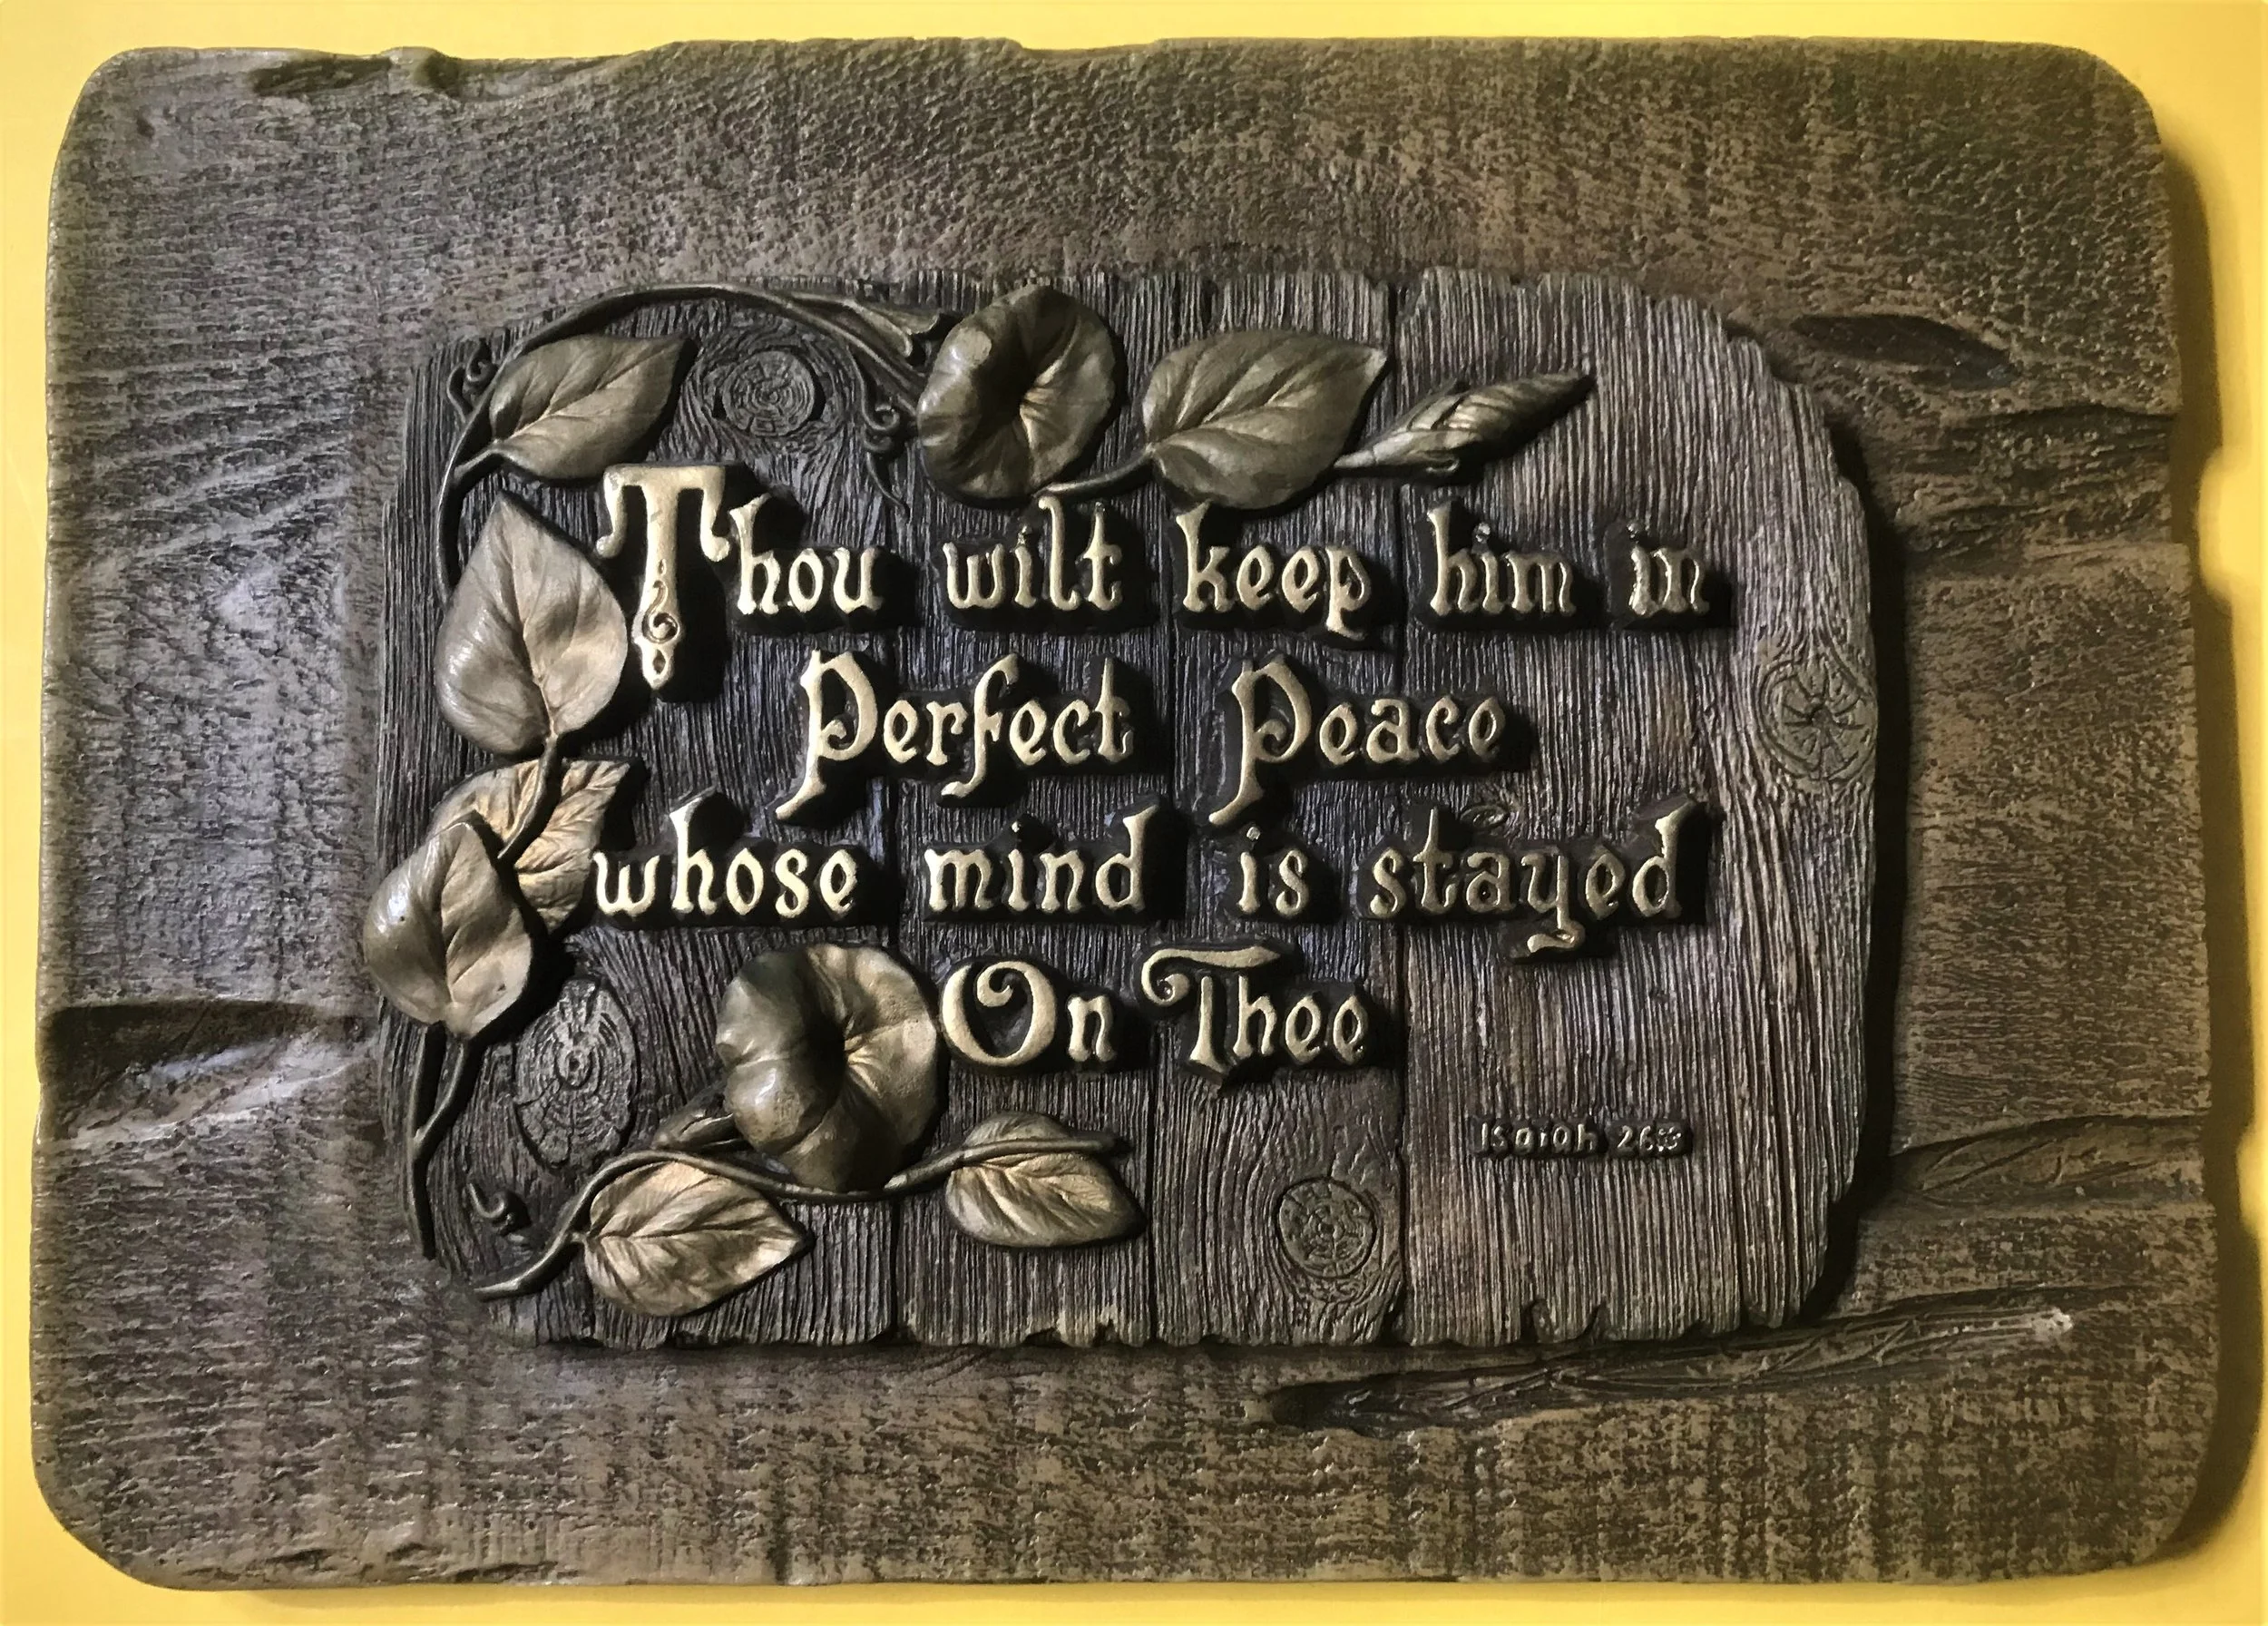 Thou wilt keep him in
Perfect Peace
whose mind is stayed
On Thee
Isaiah 26:3